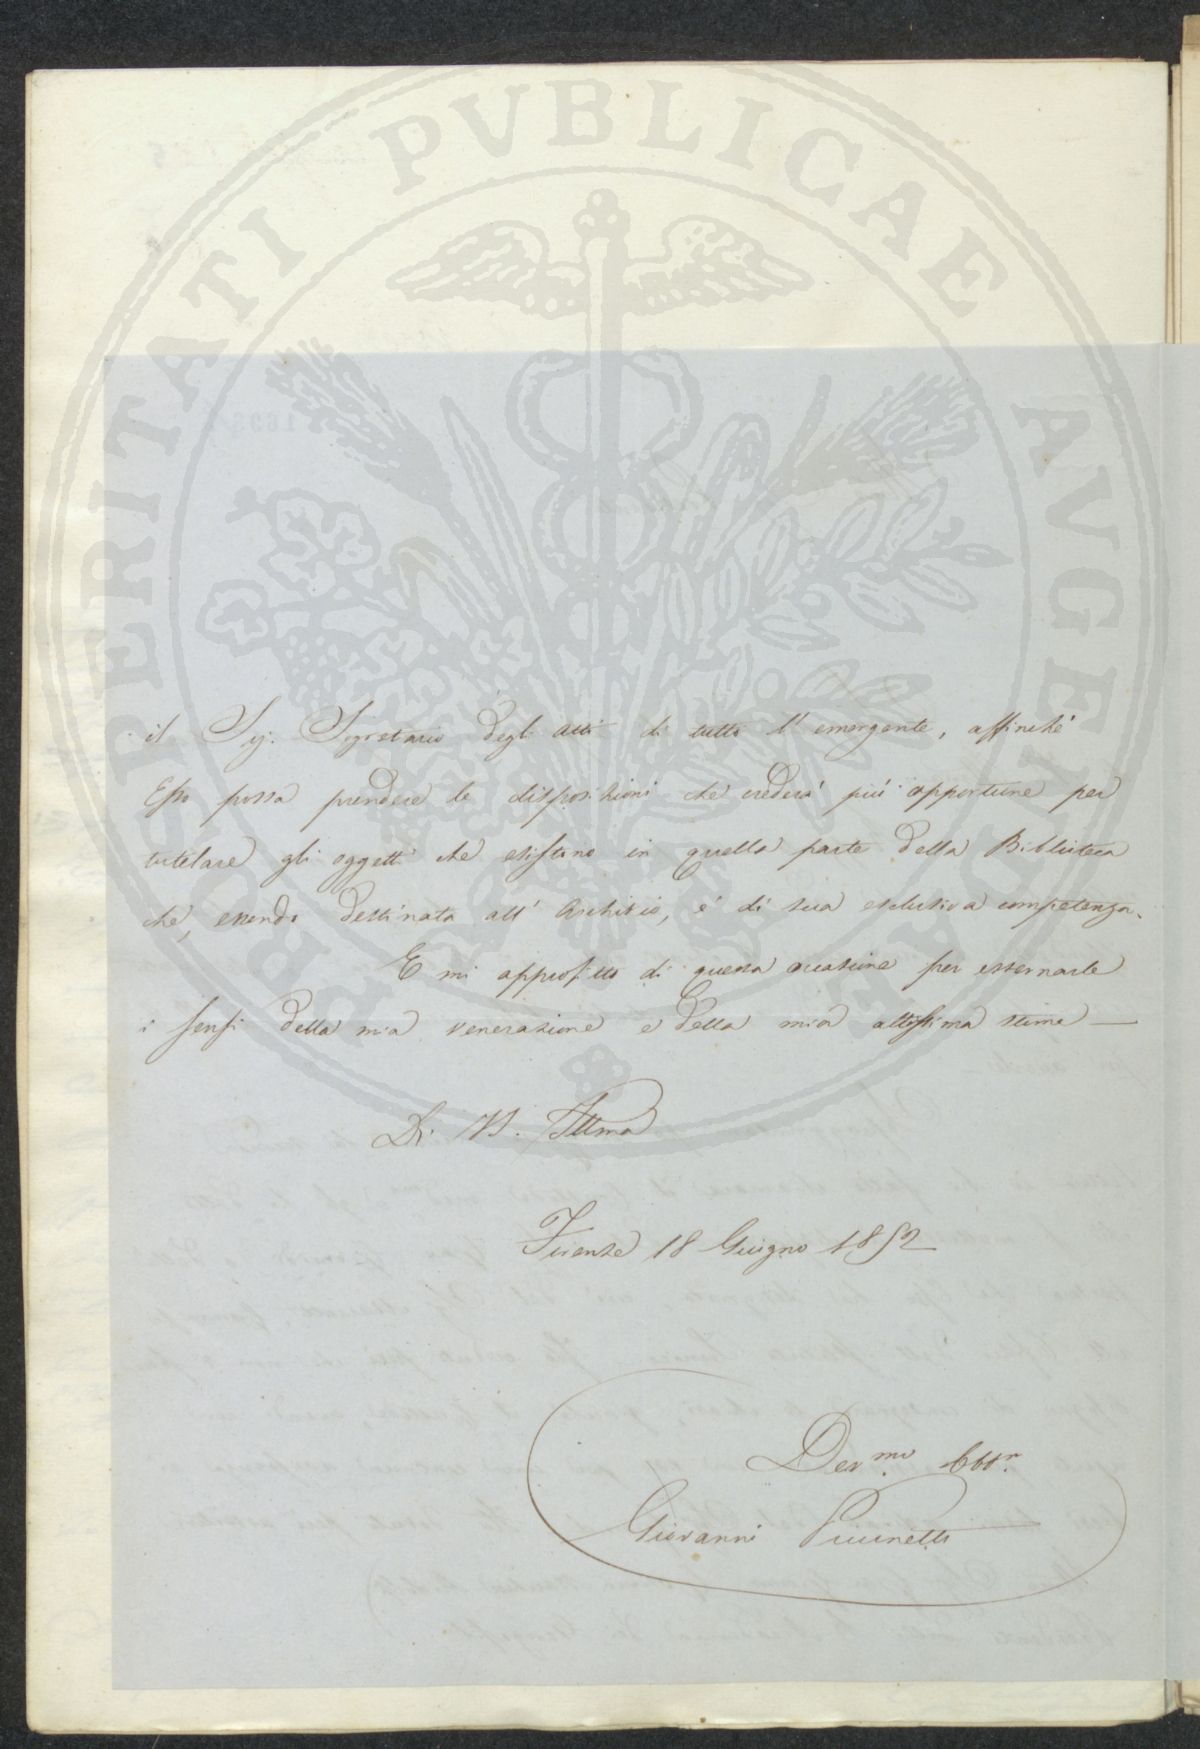 PROSPERITATI PVBLICAE AVGENDAE
il Sig. Segretario degli atti di tutto l' emergente, affinché
Esso possa prendere le disposizioni che crederà più opportune per
tutelare gli oggetti che esistono in quella parte della Biblioteca
che, essendo destinata all' Archivio, è di sua esclusiva competenza.
E mi approfitto di questa occasione per esternarle
i sensi della mia venerazione e della mia altissima stima —
Di VS. Illma
Firenze 18 Giugno 1852
Dev.mo Obb.r
Giovanni